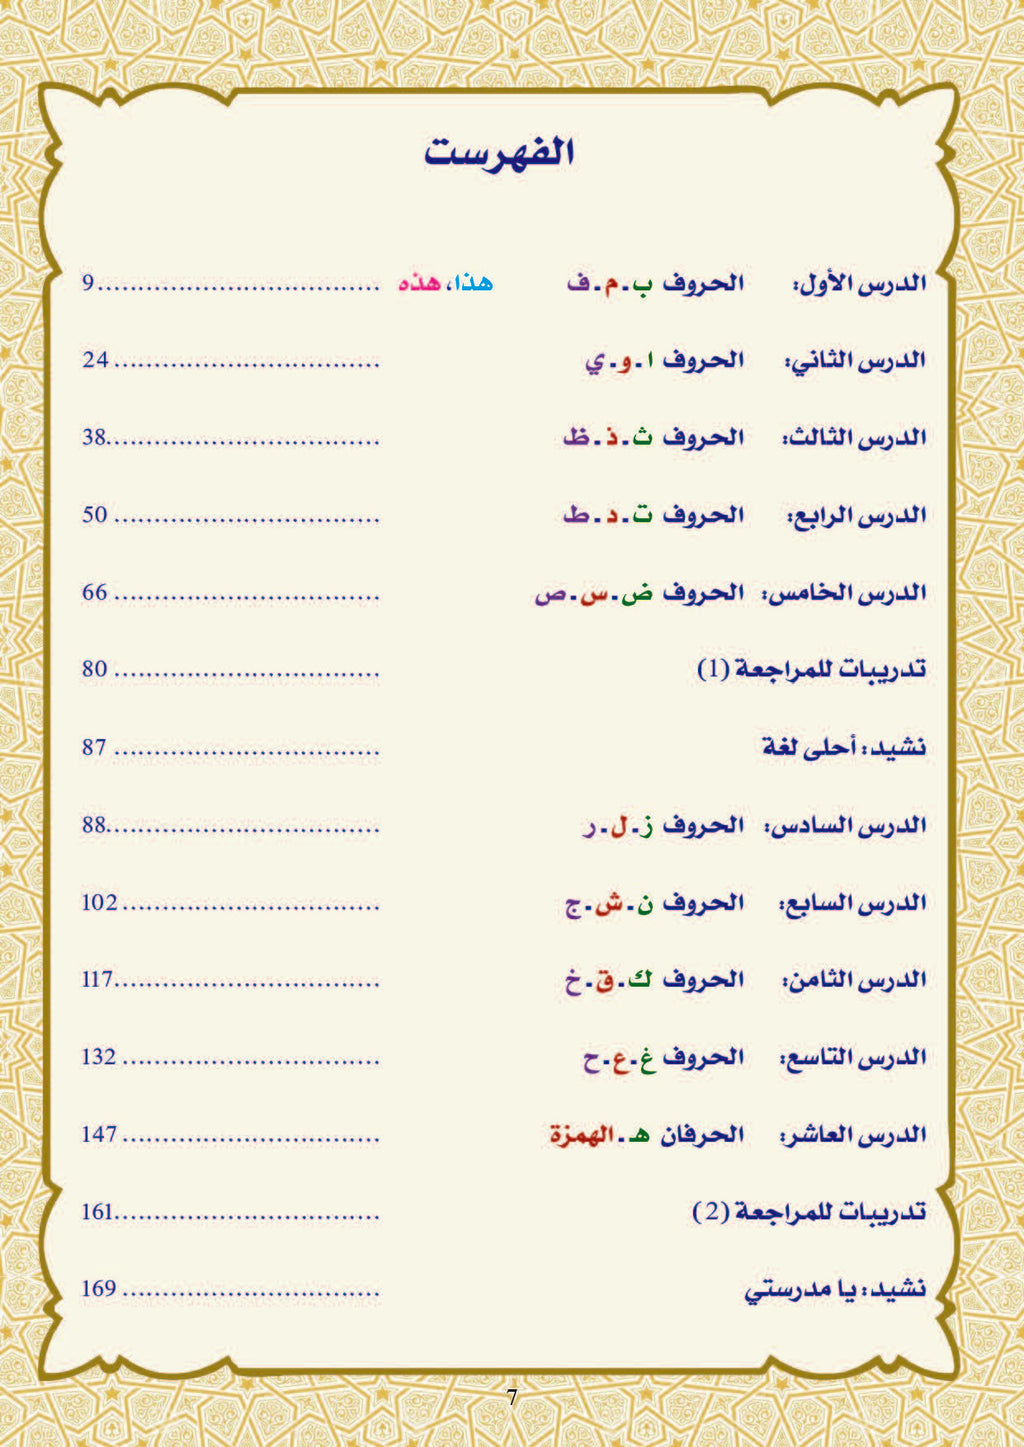 الفهرست
الدرس الأول: الحروف ب - م - ف هذا، هذه ................................... 9
الدرس الثاني: الحروف ا - و - ي ................................. 24
الدرس الثالث: الحروف ث - ذ - ظ .................................. 38
الدرس الرابع: الحروف ت - د - ط ................................. 50
الدرس الخامس: الحروف ض - س - ص ................................. 66
تدريبات للمراجعة (1) ................................. 80
نشيد: أحلى لغة ................................. 87
الدرس السادس: الحروف ز - ل - ر .................................. 88
الدرس السابع: الحروف ن - ش - ج ................................ 102
الدرس الثامن: الحروف ك - ق - خ ................................. 117
الدرس التاسع: الحروف غ - ع - ح ................................ 132
الدرس العاشر: الحرفان هـ - الهمزة ................................ 147
تدريبات للمراجعة (2) ................................. 161
نشيد: يا مدرستي ................................ 169
7